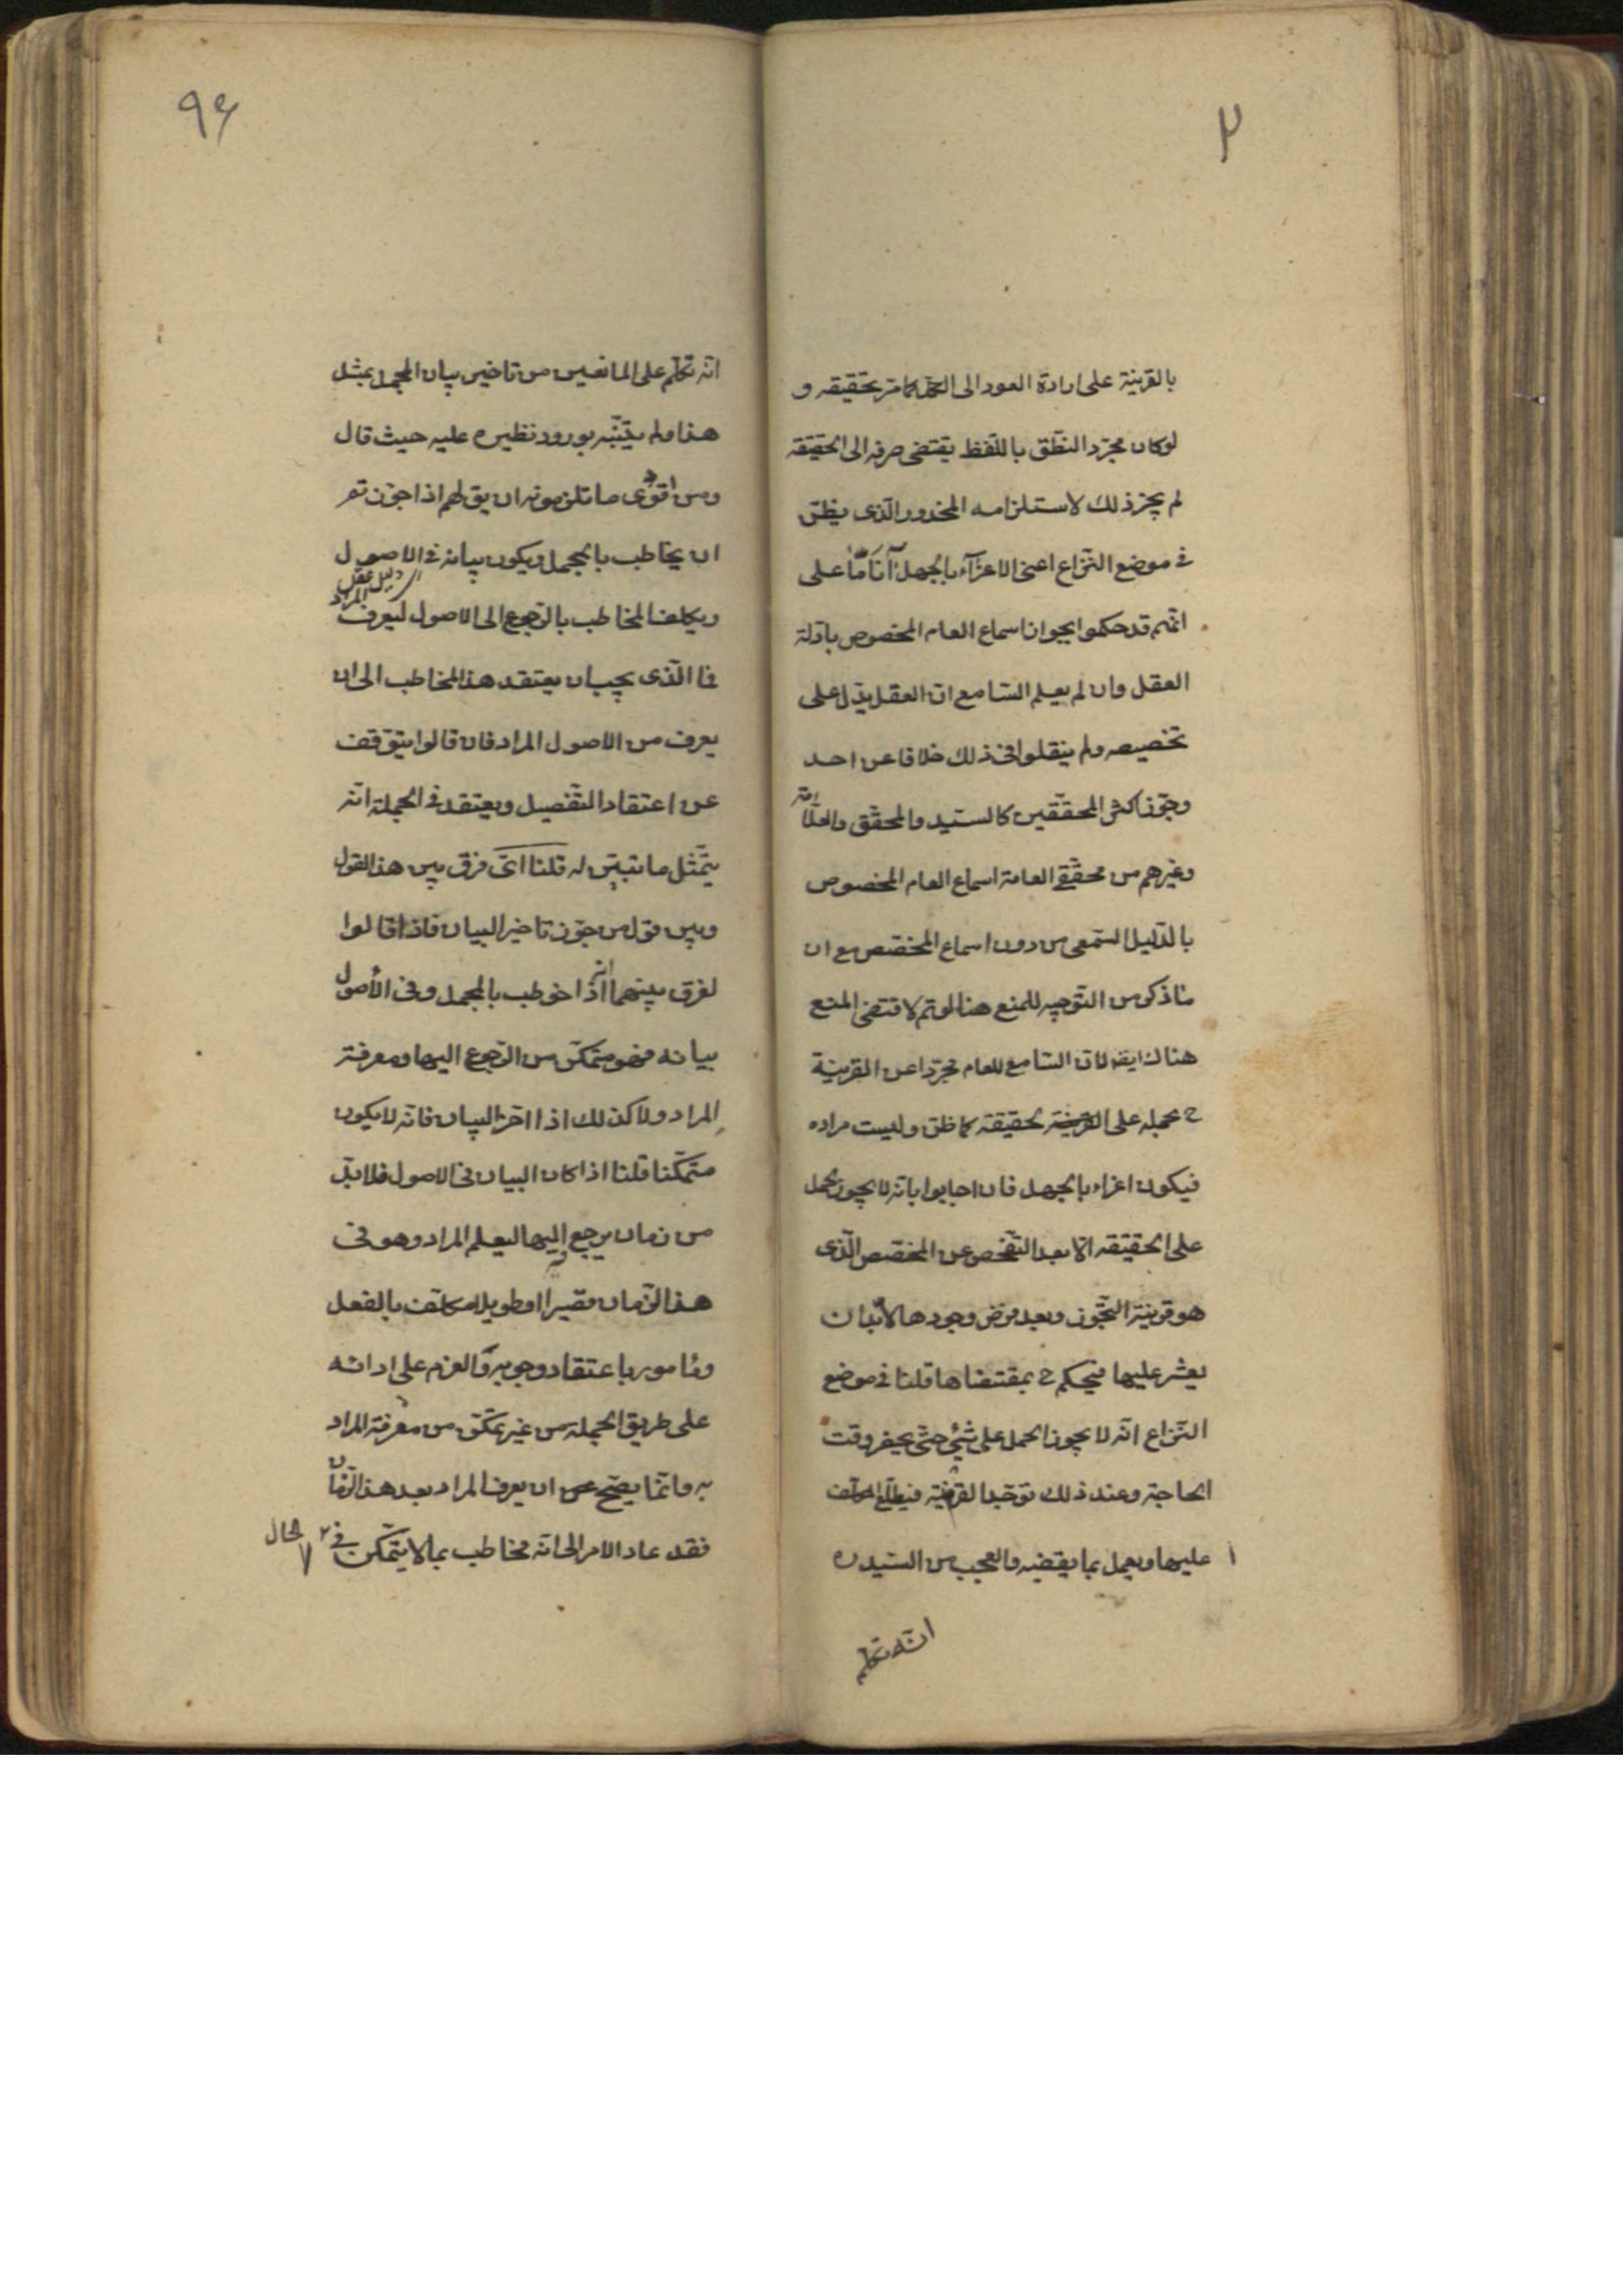 ٢
بالقرينة على ارادة العود الى الكل كما مر تحقيقه و
لوكان مجرّد النّطق باللّفظ يقتضى صرفه الى الحقيقة
لم يجز ذلك لاستلزامه المحذور الّذى يظنّ
فى موضع النّزاع اعنى الاغراء بالجهل آناً مّا على
انّهم قد حكموا بجواز اسماع العام المخصوص بادلة
العقل وان لم يعلم السّامع ان العقل يدّل على
تخصيصه ولم ينقلوا فى ذلك خلافا عن احد
وجوّز اكثر المحققين كالسّيد والمحقّق والعلّامة
وغيرهم من محقّقى العامة اسماع العام المخصوص
بالدّليل السّمعى من دون اسماع المخصّص مع ان
ما ذكر من التّوجيه للمنع هنا لو تم لاقتضى المنع
هناك ايضا لان السّامع للعام مجرّدا عن القرينة
ح يحمله على الحقيقة كما ظن وليست مراده
فيكون اغراء بالجهل فان اجابوا بانّه لا يجوز الحمل
على الحقيقة الّا بعد التّفحص عن المخصّص الّذى
هو قرينة التّجّوز وبعد فرض وجودها لا بّد ان
يعثر عليها فيحكم ح بمقتضاها قلنا فى موضع
النّزاع انّه لا يجوز الحمل على شئ حتّى يحضر وقت
الحاجة وعند ذلك توجد القرينة فيطّلع المكلف
عليها ويعمل بما يقضيه والعجب من السّيد ره
انّه تكلم
٩٤
انّه تكلّم على المانعين من تاخير بيان المجمل بمثل
هذا ولم يتنّبه بورود نظيره عليه حيث قال
ومن اقوى ما تلزمونه ان يق لهم اذا جوّزتم
ان يخاطب بالمجمل ويكون بيانه فى الاصول
اى دليل عقل
ويكلف المخاطب بالرّجوع الى الاصول ليعرف المراد
فما الّذى يجب ان يعتقد هذا المخاطب الى ان
يعرف من الاصول المراد فان قالوا يتوّقف
عن اعتقاد التّفصيل ويعتقد فى الجملة انّه
يتّمثل ما تبيّن له قلنا اىّ فرق بين هذا القول
وبين قول من جوّز تاخير البيان فاذا قالوا
لفرق بينهما انّه اذا خوطب بالمجمل وفى الأصول
بيانه فهو متمكّن من الرّجوع اليها ومعرفة
المراد ولا كذلك اذا اخّر البيان فانّه لا يكون
متمكّنا قلنا اذا كان البيان فى الاصول فلا بدّ
من زمان يرجع اليها ليعلم المراد وهو فى
هذا الزّمان قصيرا او طويلا مكلّف بالفعل
ومأمور باعتقاد وجوبه والعزم على ادائه
على طريق الجملة من غير تمكّن من معرفة المراد
به وانّما يصّح ان يعرف المراد بعد هذا الزّمان
فقد عاد الامر الى انّه مخاطب بما لا يتمكّن فى الحال